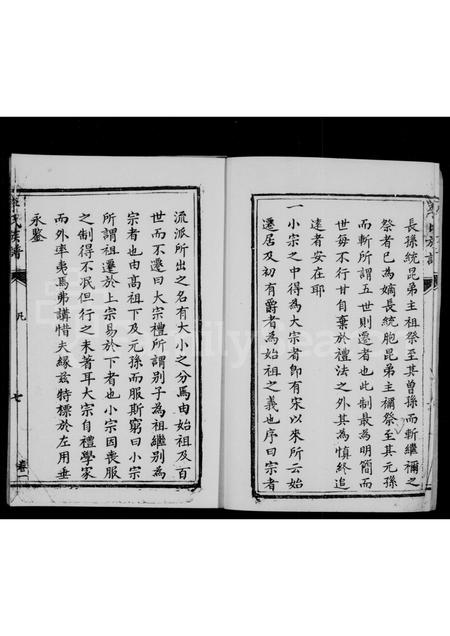 長孫統昆弟主祖祭至其曾孫而斬繼禰之
祭者已為嫡長統胞昆弟主禰祭至其元孫
而斬所謂五世則遷者也此制最為明簡而
世每不行甘自棄於禮法之外其為慎終追
遠者安在耶
一小宗之中得為大宗者即有宋以來所云始
遷居及初有爵者為始祖之義也序曰宗者
流派所出之名有大小之分焉由始祖及百
世而不遷曰大宗禮所謂別子為祖繼別為
宗者也由高祖下及元孫而服斯窮曰小宗
所謂祖遷於上宗易於下者也小宗因喪服
之制得不泯但行之未著耳大宗自禮學家
而外率夷焉弗講惜夫緣茲特標於左用垂
永鑒
氏族譜
凡
七
卷一